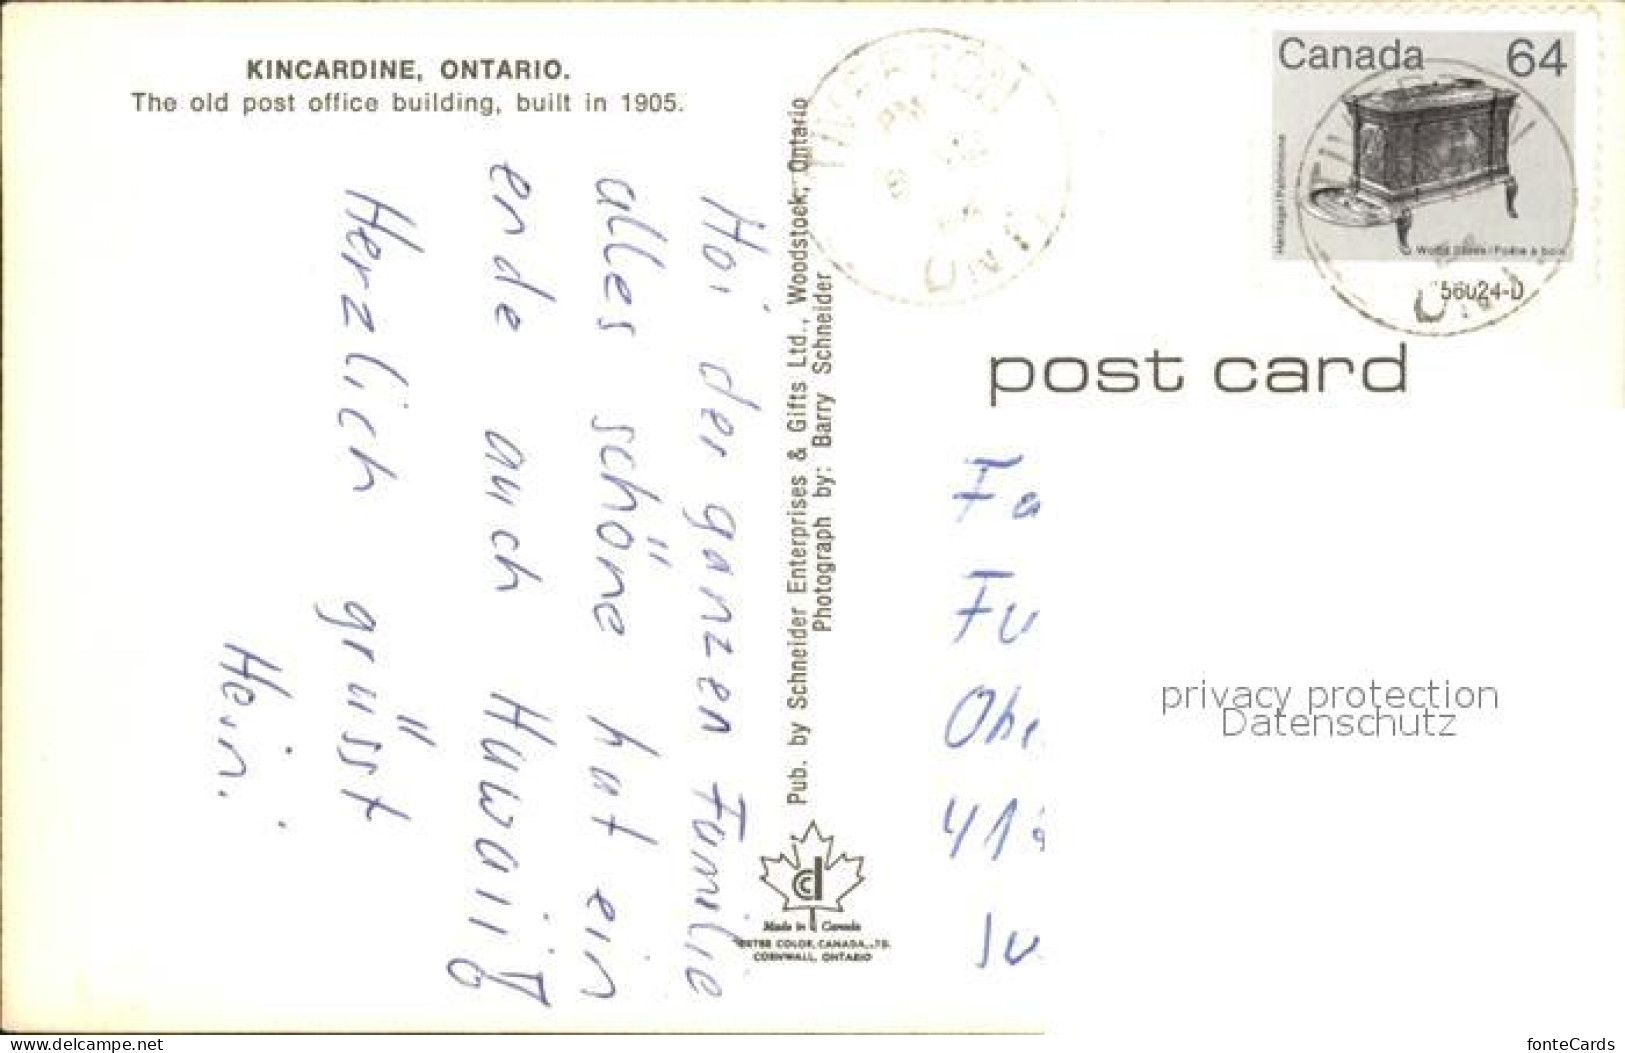 KINCARDINE, ONTARIO.
The old post office building, built in 1905.
Hoi der ganzen Familie
alles schöne hat ein
ende auch
Herzlich grüsst
Hein.
Pub. by Schneider Enterprises & Gifts Ltd., Woodstock, Ontario
Photograph by: Barry Schneider
Made in Canada
CORNWALL, ONTARIO
TIVERTON
PM
ONT
Canada 64
Heritage / Patrimoine
Wood Stove / Poêle à bois
56024-D
ONT
post card
Fa
Fu
Obe
41
privacy protection
Datenschutz
www.delcampe.net
fonteCards